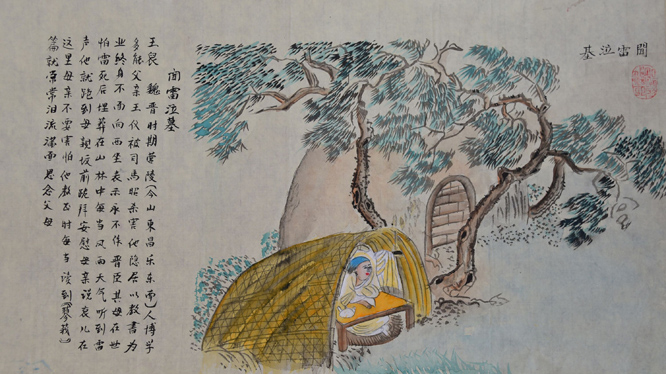 聞雷泣墓
闻雷泣墓
王裒 魏晋时期营陵(今山東昌乐东南)人博学
多能父亲王仪被司馬昭杀害他隐居以教書为
业終身不面向西坐表示永不作晋臣其母在世
怕雷死后埋葬在山林中每当风雨天气听到雷
声他就跑到母親坟前跪拜安慰母亲说裒儿在
这里母亲不要害怕他教书时每当读到《蓼莪》
篇就常常泪流满面思念父母